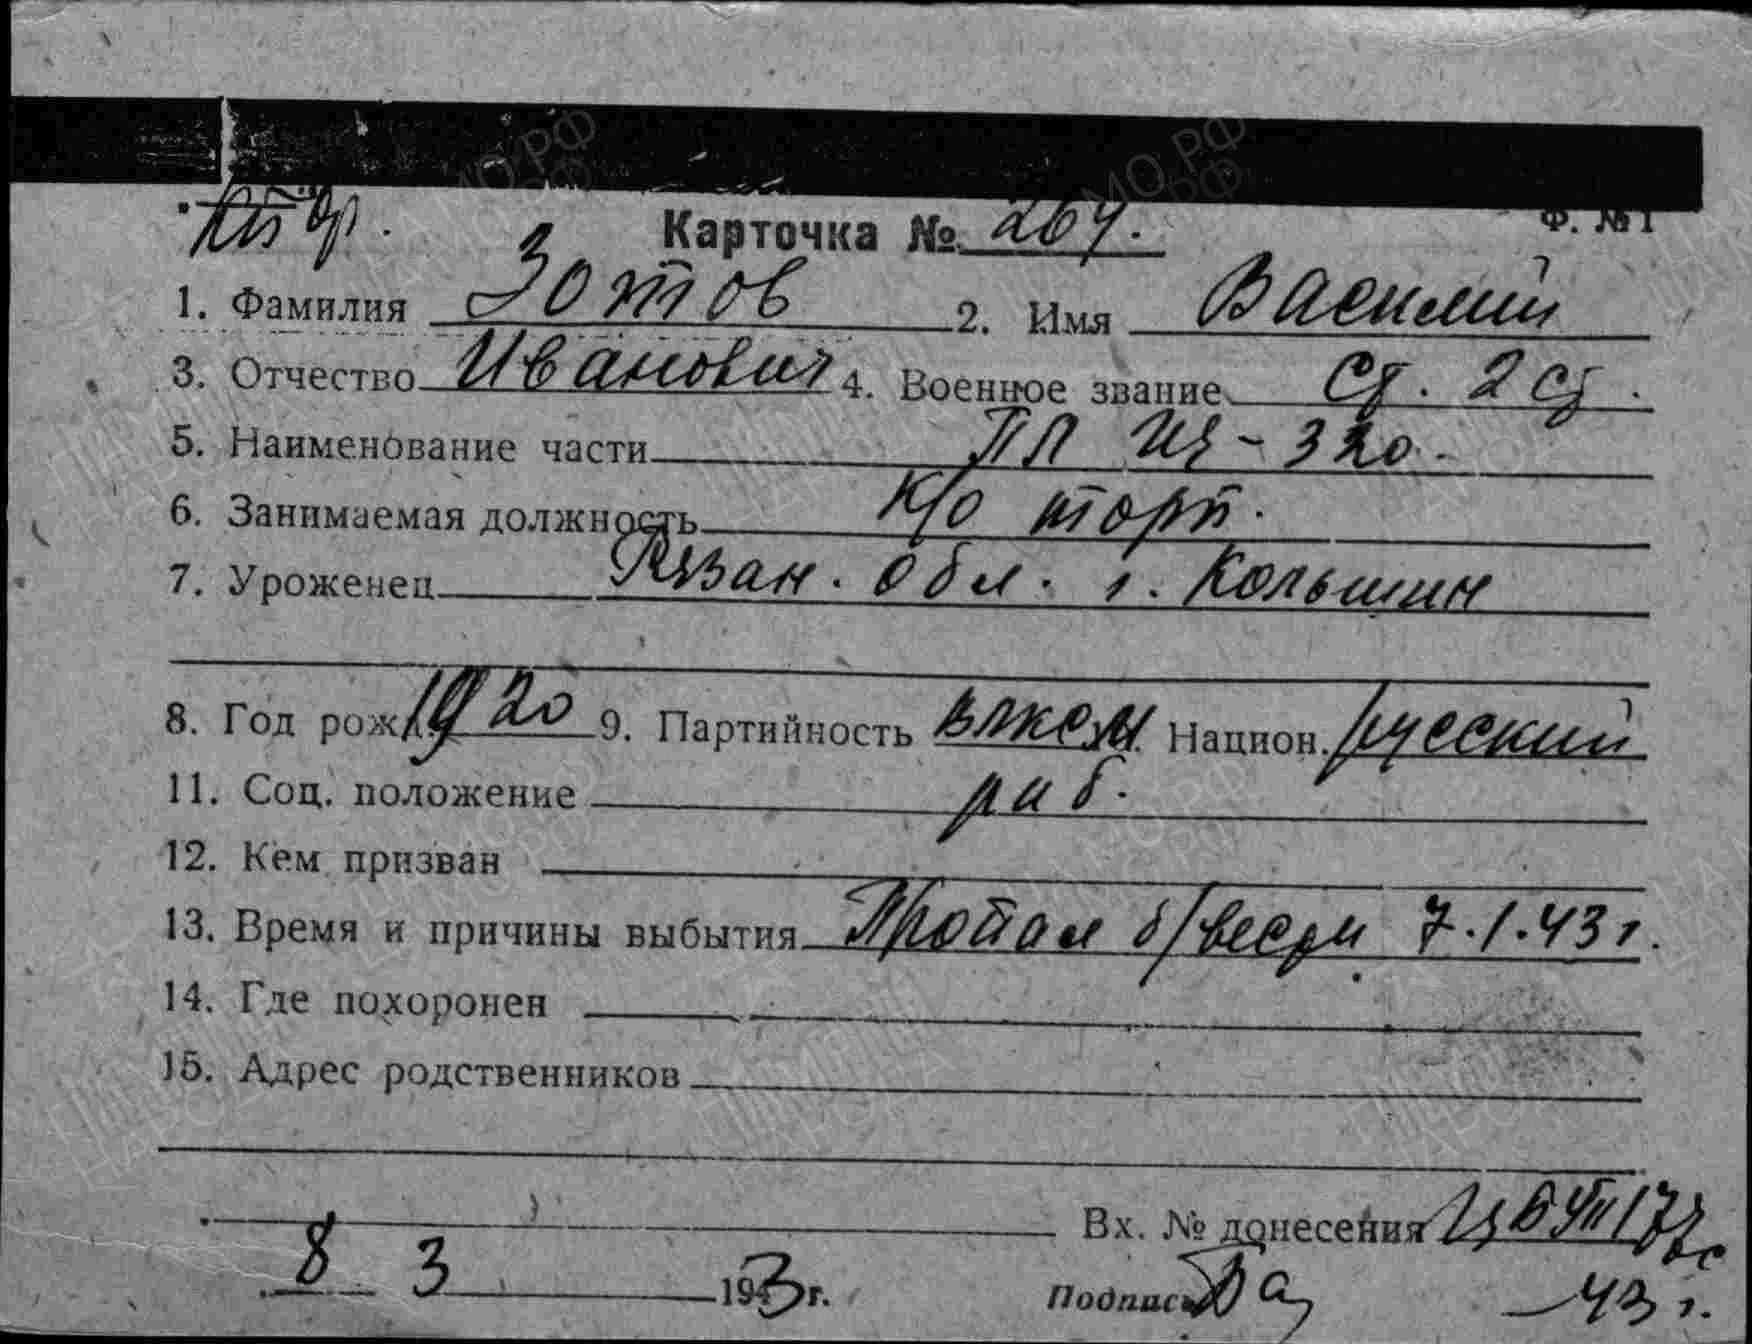 Карточка № 264. Ф. №1
1. Фамилия Зотов 2. Имя Василий
3. Отчество Иванович 4. Военное звание Ст. 2 ст.
5. Наименование части ПЛ Щ-320.
6. Занимаемая должность К/о торп.
7. Уроженец Рязан. Обл. г. Кольшин
8. Год рож. 1920 9. Партийность ВЛКСМ Национ. русский
11. Соц. положение раб.
12. Кем призван
13. Время и причины выбытия Пропал б/вести 7.1.43 г.
14. Где похоронен
15. Адрес родственников
Вх. № донесения
8 3 1943 г. Подпись 43 г.